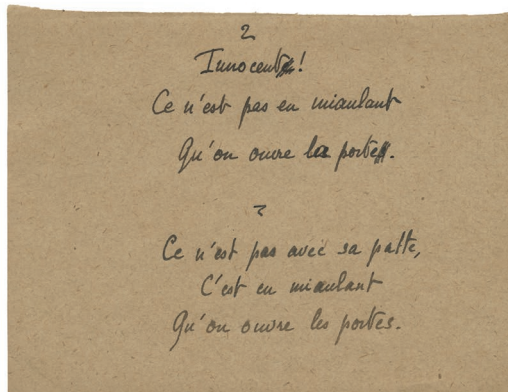 2
Innocent!
Ce n'est pas en miaulant
Qu'on ouvre la porte.
3
Ce n'est pas avec sa patte,
C'est en miaulant
Qu'on ouvre les portes.